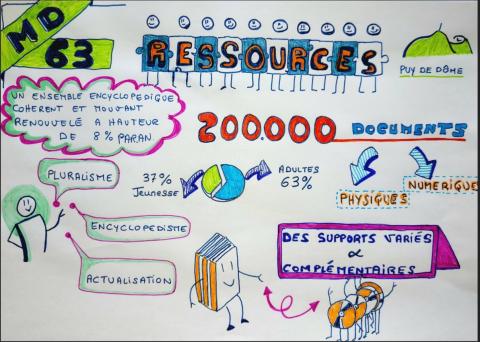 MD
63
RESSOURCES
PUY DE DÔME
UN ENSEMBLE ENCYCLOPEDIQUE
COHERENT ET MOUVANT
RENOUVELÉ A HAUTEUR
DE 8% PAR AN
200.000 DOCUMENTS
PHYSIQUES
NUMERIQUE
37%
Jeunesse
ADULTES
63%
PLURALISME
ENCYCLOPEDISME
ACTUALISATION
DES SUPPORTS VARIÉS
&
COMPLÉMENTAIRES